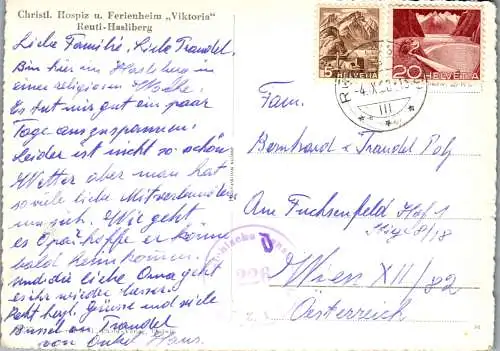 Christl. Hospiz u. Ferienheim „Viktoria"
Reuti-Hasliberg
Liebe Familie, Liebe Traudel.
Bin hier im Hasleberg in
einer religiösen Woche.
Es tut mir gut ein paar
Tage auszuspannen.
Leider ist nicht so schön
Wetter aber man hat
so viele liebe Mitverbundene
um sich. Wie geht
es Opa? hoffe er könne
bald heimkommen.
und die liebe Oma geht
es ihr wieder besser.
Recht herzl. Grüsse und viele
Küssel an Traudel
von Onkel Hans.
15
HELVETIA
20
HELVETIA
-4.X.
III
Fam.
Bernhard & Traudel
Am Fuchsenfeld Hof 1
Stiege 8/18
Wien XII/82
Oesterreich
226